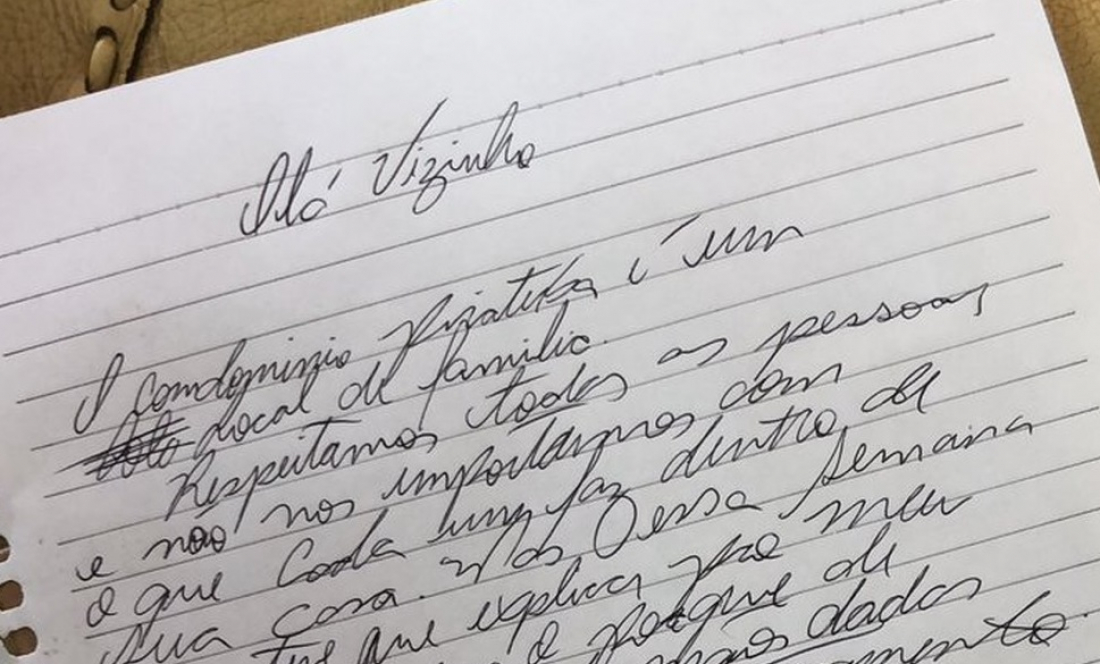 Olá Vizinho
O condominio é um
Local de familia.
Respeitamos todas as pessoas
e não nos importamos com
o que cada um faz dentro de
sua casa. Mas essa semana
tive que explicar pro meu
o porque de
mãos dadas